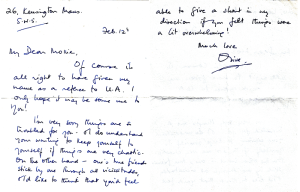 26, Kensington Mews.
S.W.8.
Feb. 12th
My Dear Moxie,
Of course it is
all right to have given my
name as a referee to U.A. I
only hope it may be some use to
you!
I'm very sorry things are a
for you - I do understand
you wanting to keep yourself to
yourself if things are very chaotic -
on the other hand - one's true friends
stick by one through all vicissitudes,
I'd like to think that you'd feel
able to give a shout in my
direction if you felt things were
a bit overwhelming!
Much love